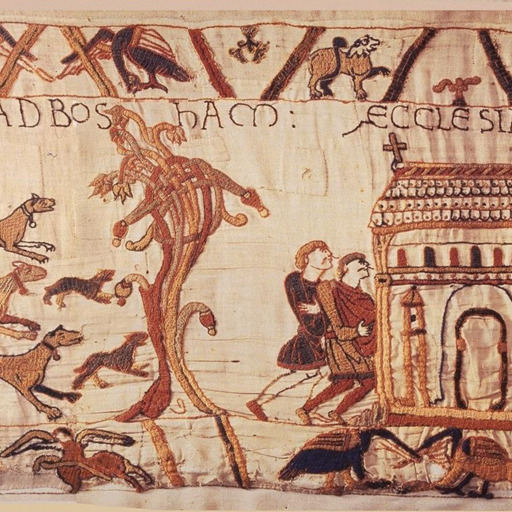 AD BOS hAM : ECCLESIA